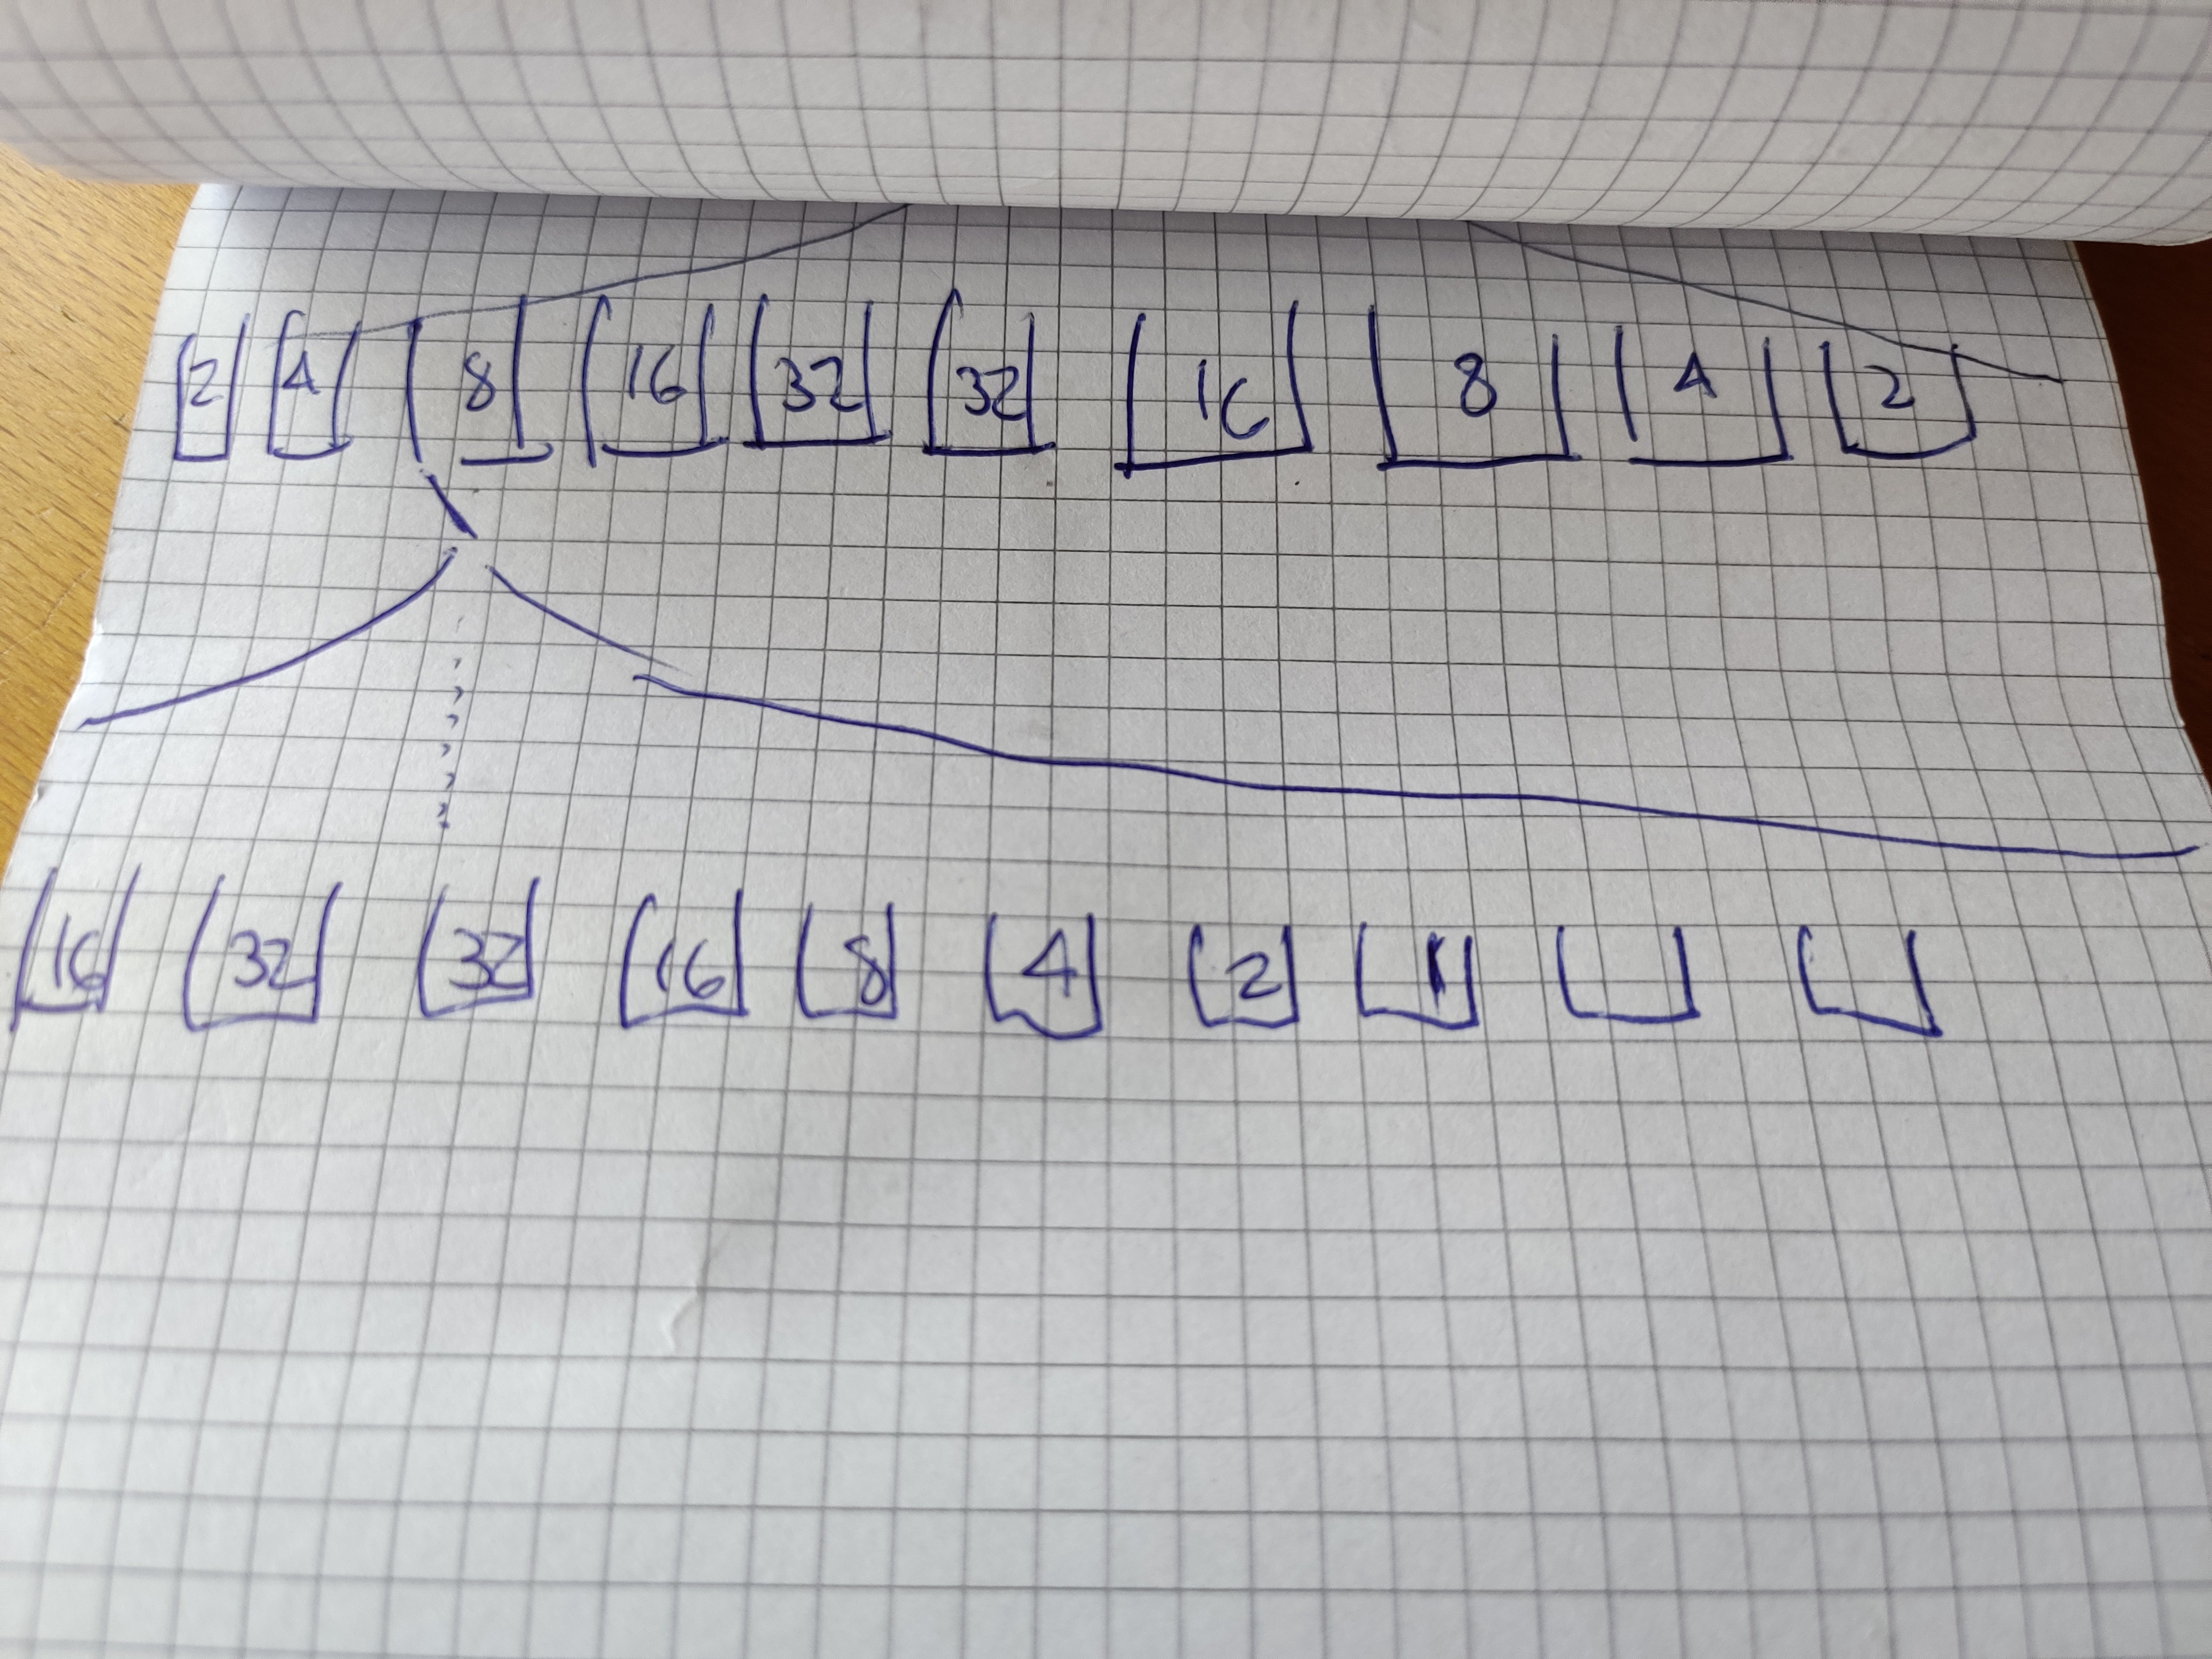 2 4 8 16 32 32 16 8 4 2
16 32 32 16 8 4 2 1